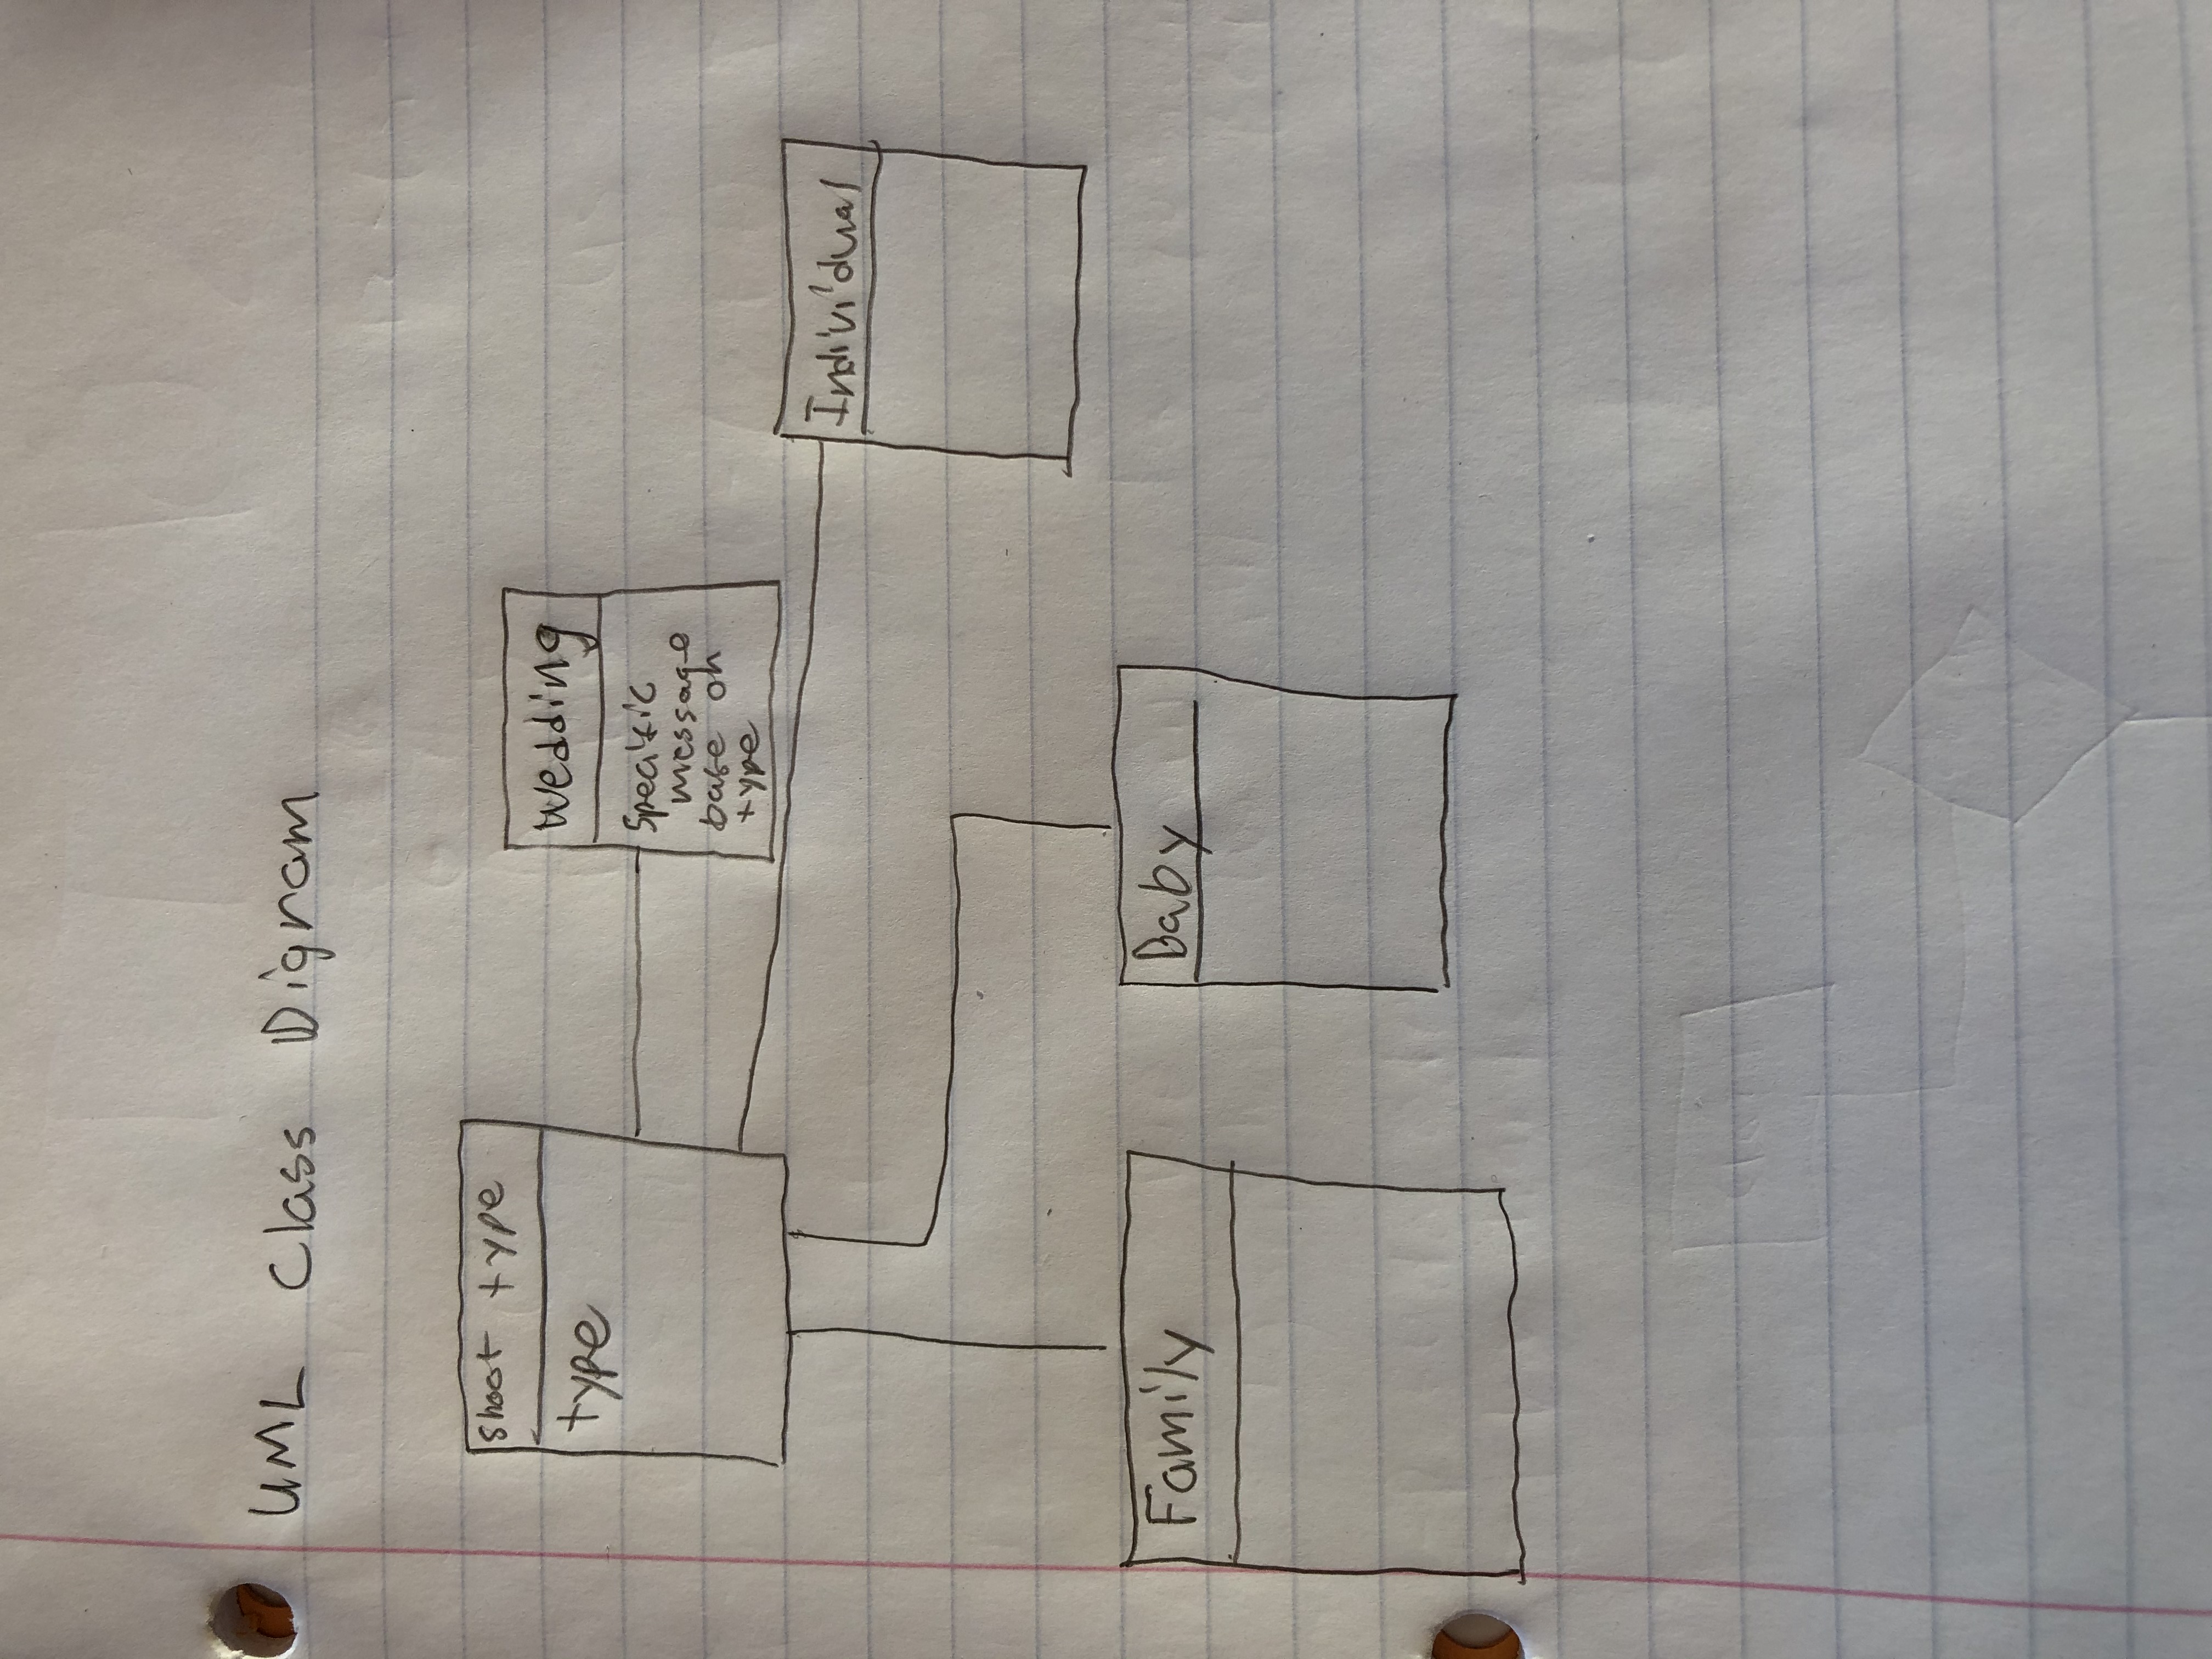 UML Class Digram
Shoot type
type
Wedding
Specific
message
base on
type
Individual
Family
Baby